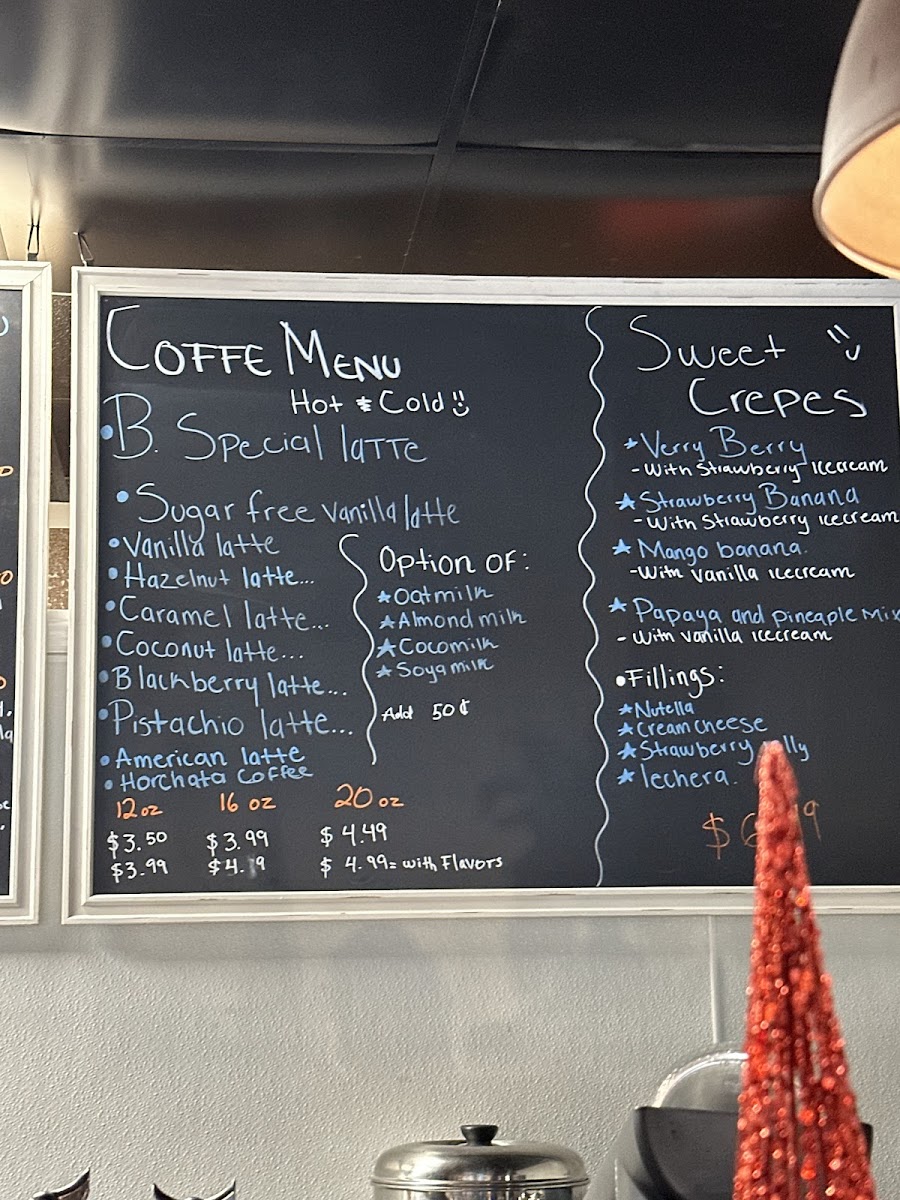 COFFE MENU
Hot & Cold
• B. Special latte
• Sugar free vanilla latte
• Vanilla latte
• Hazelnut latte...
• Caramel latte...
• Coconut latte...
• Blackberry latte...
• Pistachio latte...
• American latte
• Horchata Coffee
Option of:
★ Oatmilk
★ Almond milk
★ Cocomilk
★ Soyamilk
Add 50¢
12 oz 16 oz 20 oz
$3.50 $3.99 $4.49
$3.99 $ 4.99= with Flavors
Sweet
Crepes
★ Verry Berry
- With Strawberry Icecream
★ Strawberry Banana
- With Strawberry icecream
★ Mango banana.
- With vanilla icecream
★ Papaya and pineaple Mix
- With vanilla icecream
• Fillings:
★ Nutella
★ Cream cheese
★ Strawberry
★ lechera.